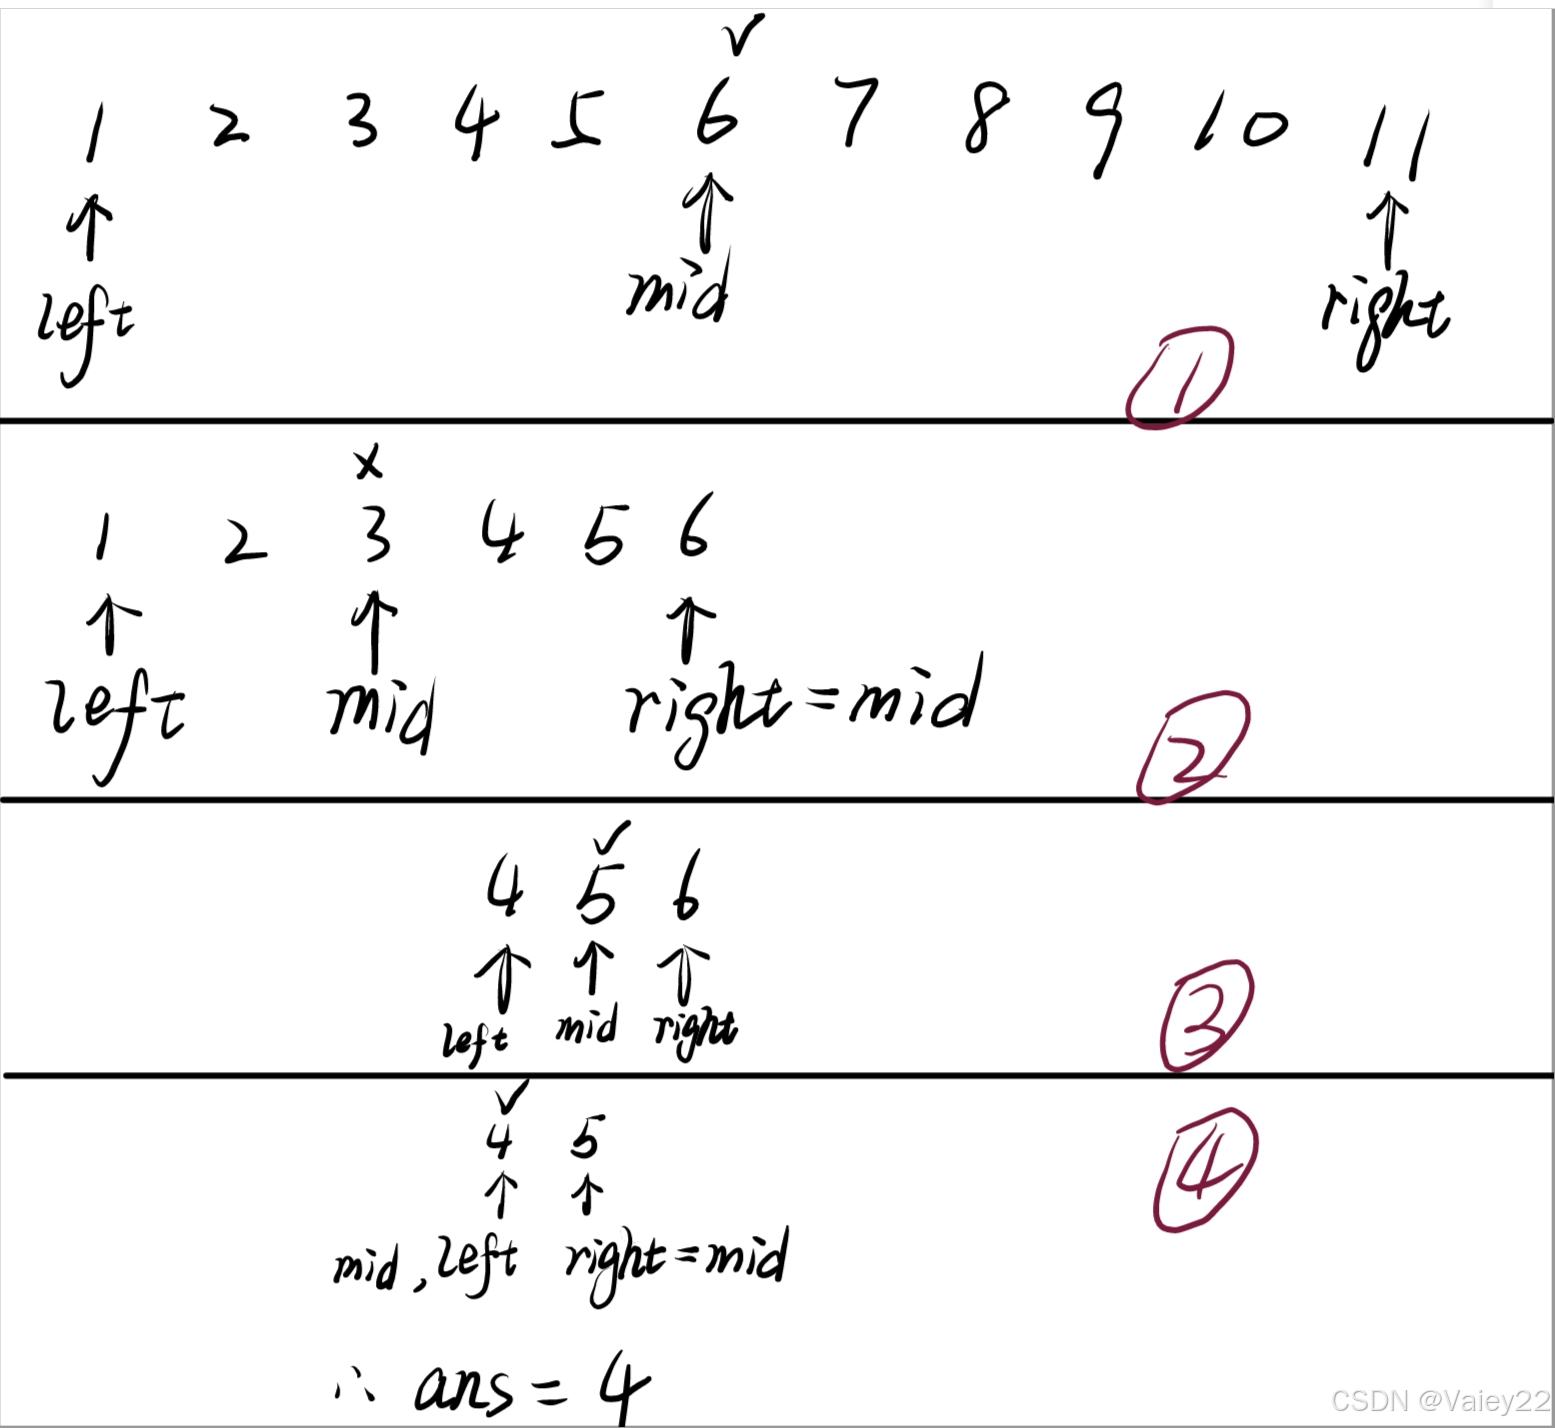 ✓
1 2 3 4 5 6 7 8 9 10 11
↑ ↑ ↑
left mid right
①
×
1 2 3 4 5 6
↑ ↑ ↑
left mid right=mid
②
✓
4 5 6
↑ ↑ ↑
left mid right
③
✓
4 5
↑ ↑
④
mid, left right=mid
∴ ans=4
CSDN @Vaiey22